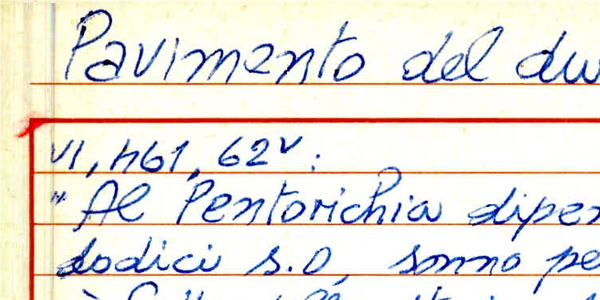 Pavimento del du
VI, h61, 62v:
"Al Pentorichia dipen
dodici s.D, sonno pe